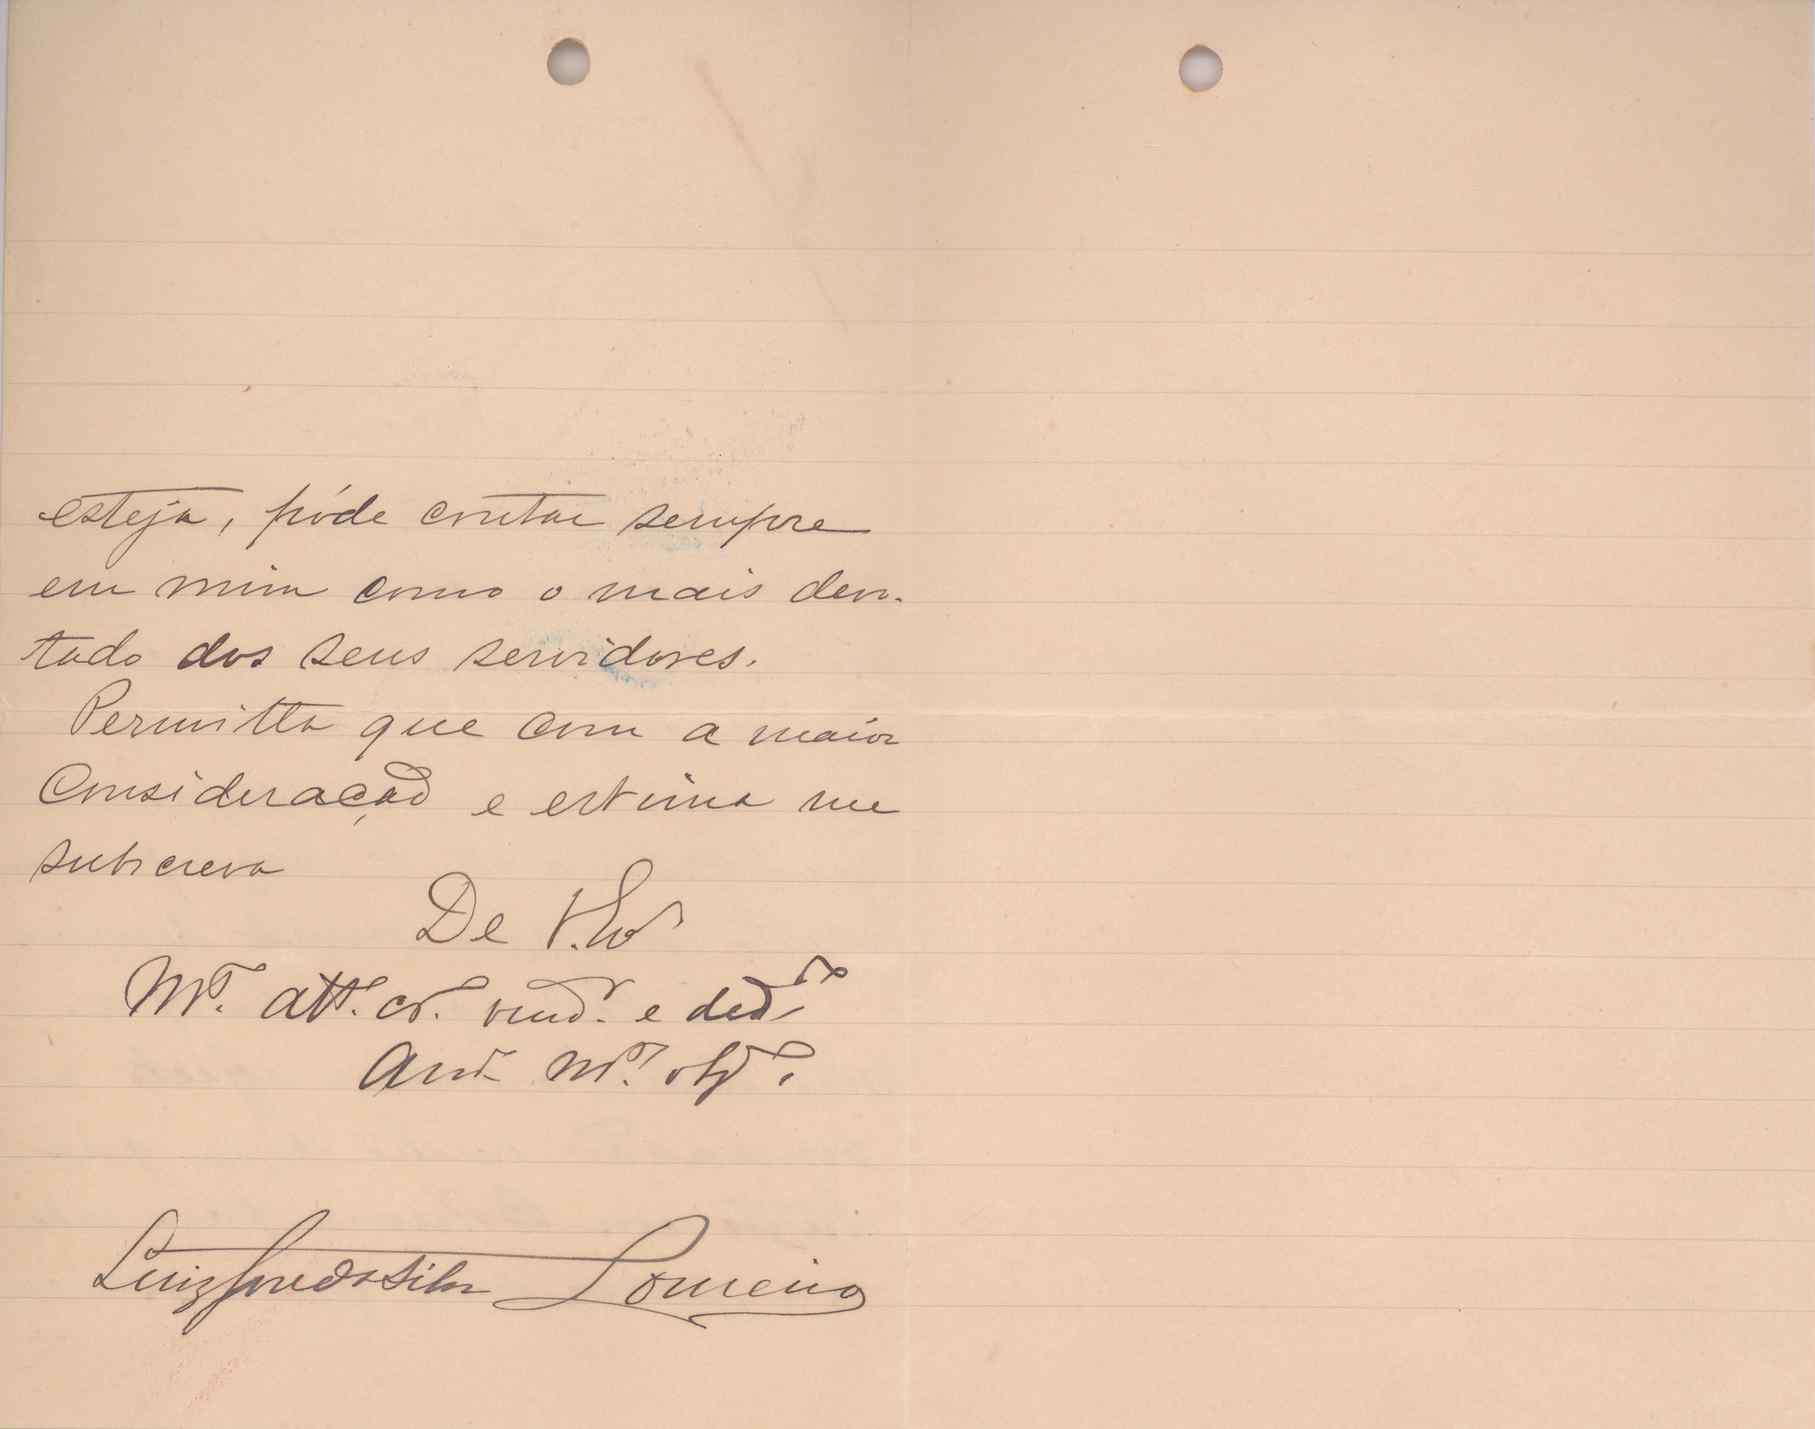 esteja, póde contar sempre
em mim como o mais devo-
tado dos seus servidores.
Permitta que com a maior
Consideração e estima me
subscreva
De V. Exª
Mto. attº. crº. venor. e dedº
Amº mtº. obgº.
Luiz José da Silva Loureiro